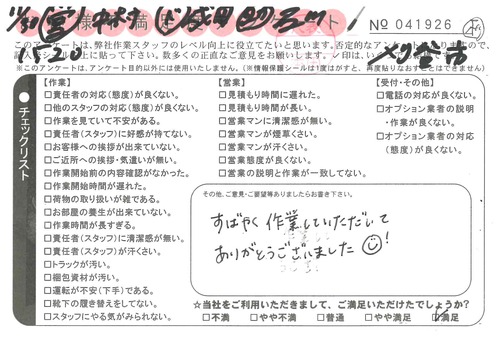 様 満 ト
No 041926
このアンケートは、弊社作業スタッフのレベル向上に役立てたいと思います。
※このアンケートは、アンケート目的以外には使用いたしません。(※情報保護シールは1度はがすと、再度貼りなおすことはできません)
刈谷市
チェックリスト
【作業】
□責任者の対応(態度)が良くない。
□他のスタッフの対応(態度)が良くない。
□作業を見ていて不安がある。
□責任者(スタッフ)に好感が持てない。
□お客様への挨拶が出来ていない。
□ご近所への挨拶・気遣いが無い。
□作業開始前の内容確認がなかった。
□作業開始時間が遅れた。
□荷物の取り扱いが雑である。
□お部屋の養生が出来ていない。
□作業時間が長すぎる。
□責任者(スタッフ)に清潔感が無い。
□責任者(スタッフ)が汗くさい。
□トラックが汚い。
□梱包資材が汚い。
□運転が不安(下手)である。
□靴下の履き替えをしてない。
□スタッフにやる気がみられない。
【営業】
□見積もり時間に遅れた。
□見積もり時間が長い。
□営業マンに清潔感が無い。
□営業マンが煙草くさい。
□営業マンが汗くさい。
□営業態度が良くない。
□営業の説明と作業が一致してない。
【受付・その他】
□電話の対応が良くない。
□オプション業者の説明
・作業が良くない。
□オプション業者の対応
(態度)が良くない。
その他、ご意見・ご要望等ありましたらお書き下さい。
すばやく 作業していただいて
ありがとうございました!
☆当社をご利用いただきまして、ご満足いただけたでしょうか?
□不満 □やや不満 □普通 □やや満足 ☑満足